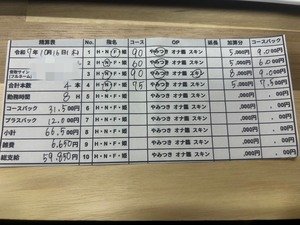 精算表 No. 指名 コース OP 延長 加算分 コースバック
令和9年10月16日(木) 1 H・N・F・姫 90 やみつき オナ鑑 スキン 5,000円 9,000円
2 H・N・F・姫 60 やみつき オナ鑑 スキン 5,000円 6,000円
3 H・N・F・姫 90 やみつき オナ鑑 スキン 8,000円 9,000円
合計本数 4本 4 H・N・F・姫 75 やみつき オナ鑑 スキン 5,000円 7,500円
勤務時間 8H 5 H・N・F・姫 やみつき オナ鑑 スキン ,00円 ,00円
コースバック 31,500円 6 H・N・F・姫 やみつき オナ鑑 スキン ,00円 ,00円
プラスバック 12,000円 7 H・N・F・姫 やみつき オナ鑑 スキン ,00円 ,00円
小計 66,500円 8 H・N・F・姫 やみつき オナ鑑 スキン ,00円 ,00円
雑費 6,650円 9 H・N・F・姫 やみつき オナ鑑 スキン ,00円 ,00円
総支給 59,850円 10 H・N・F・姫 やみつき オナ鑑 スキン ,00円 ,00円